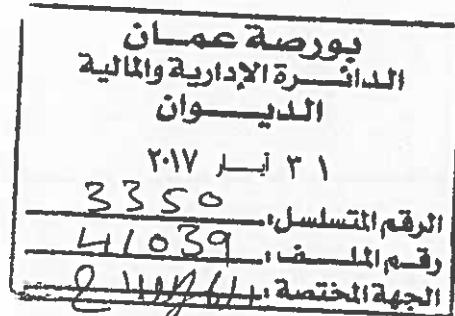 بورصة عمـــان
الدائـــرة الإدارية والمالية
الديـــــوان
٣١ أيـار ٢٠١٧
الرقم المتسلسل: 3350
رقـم الملـــف: 41039
الجهة المختصة: